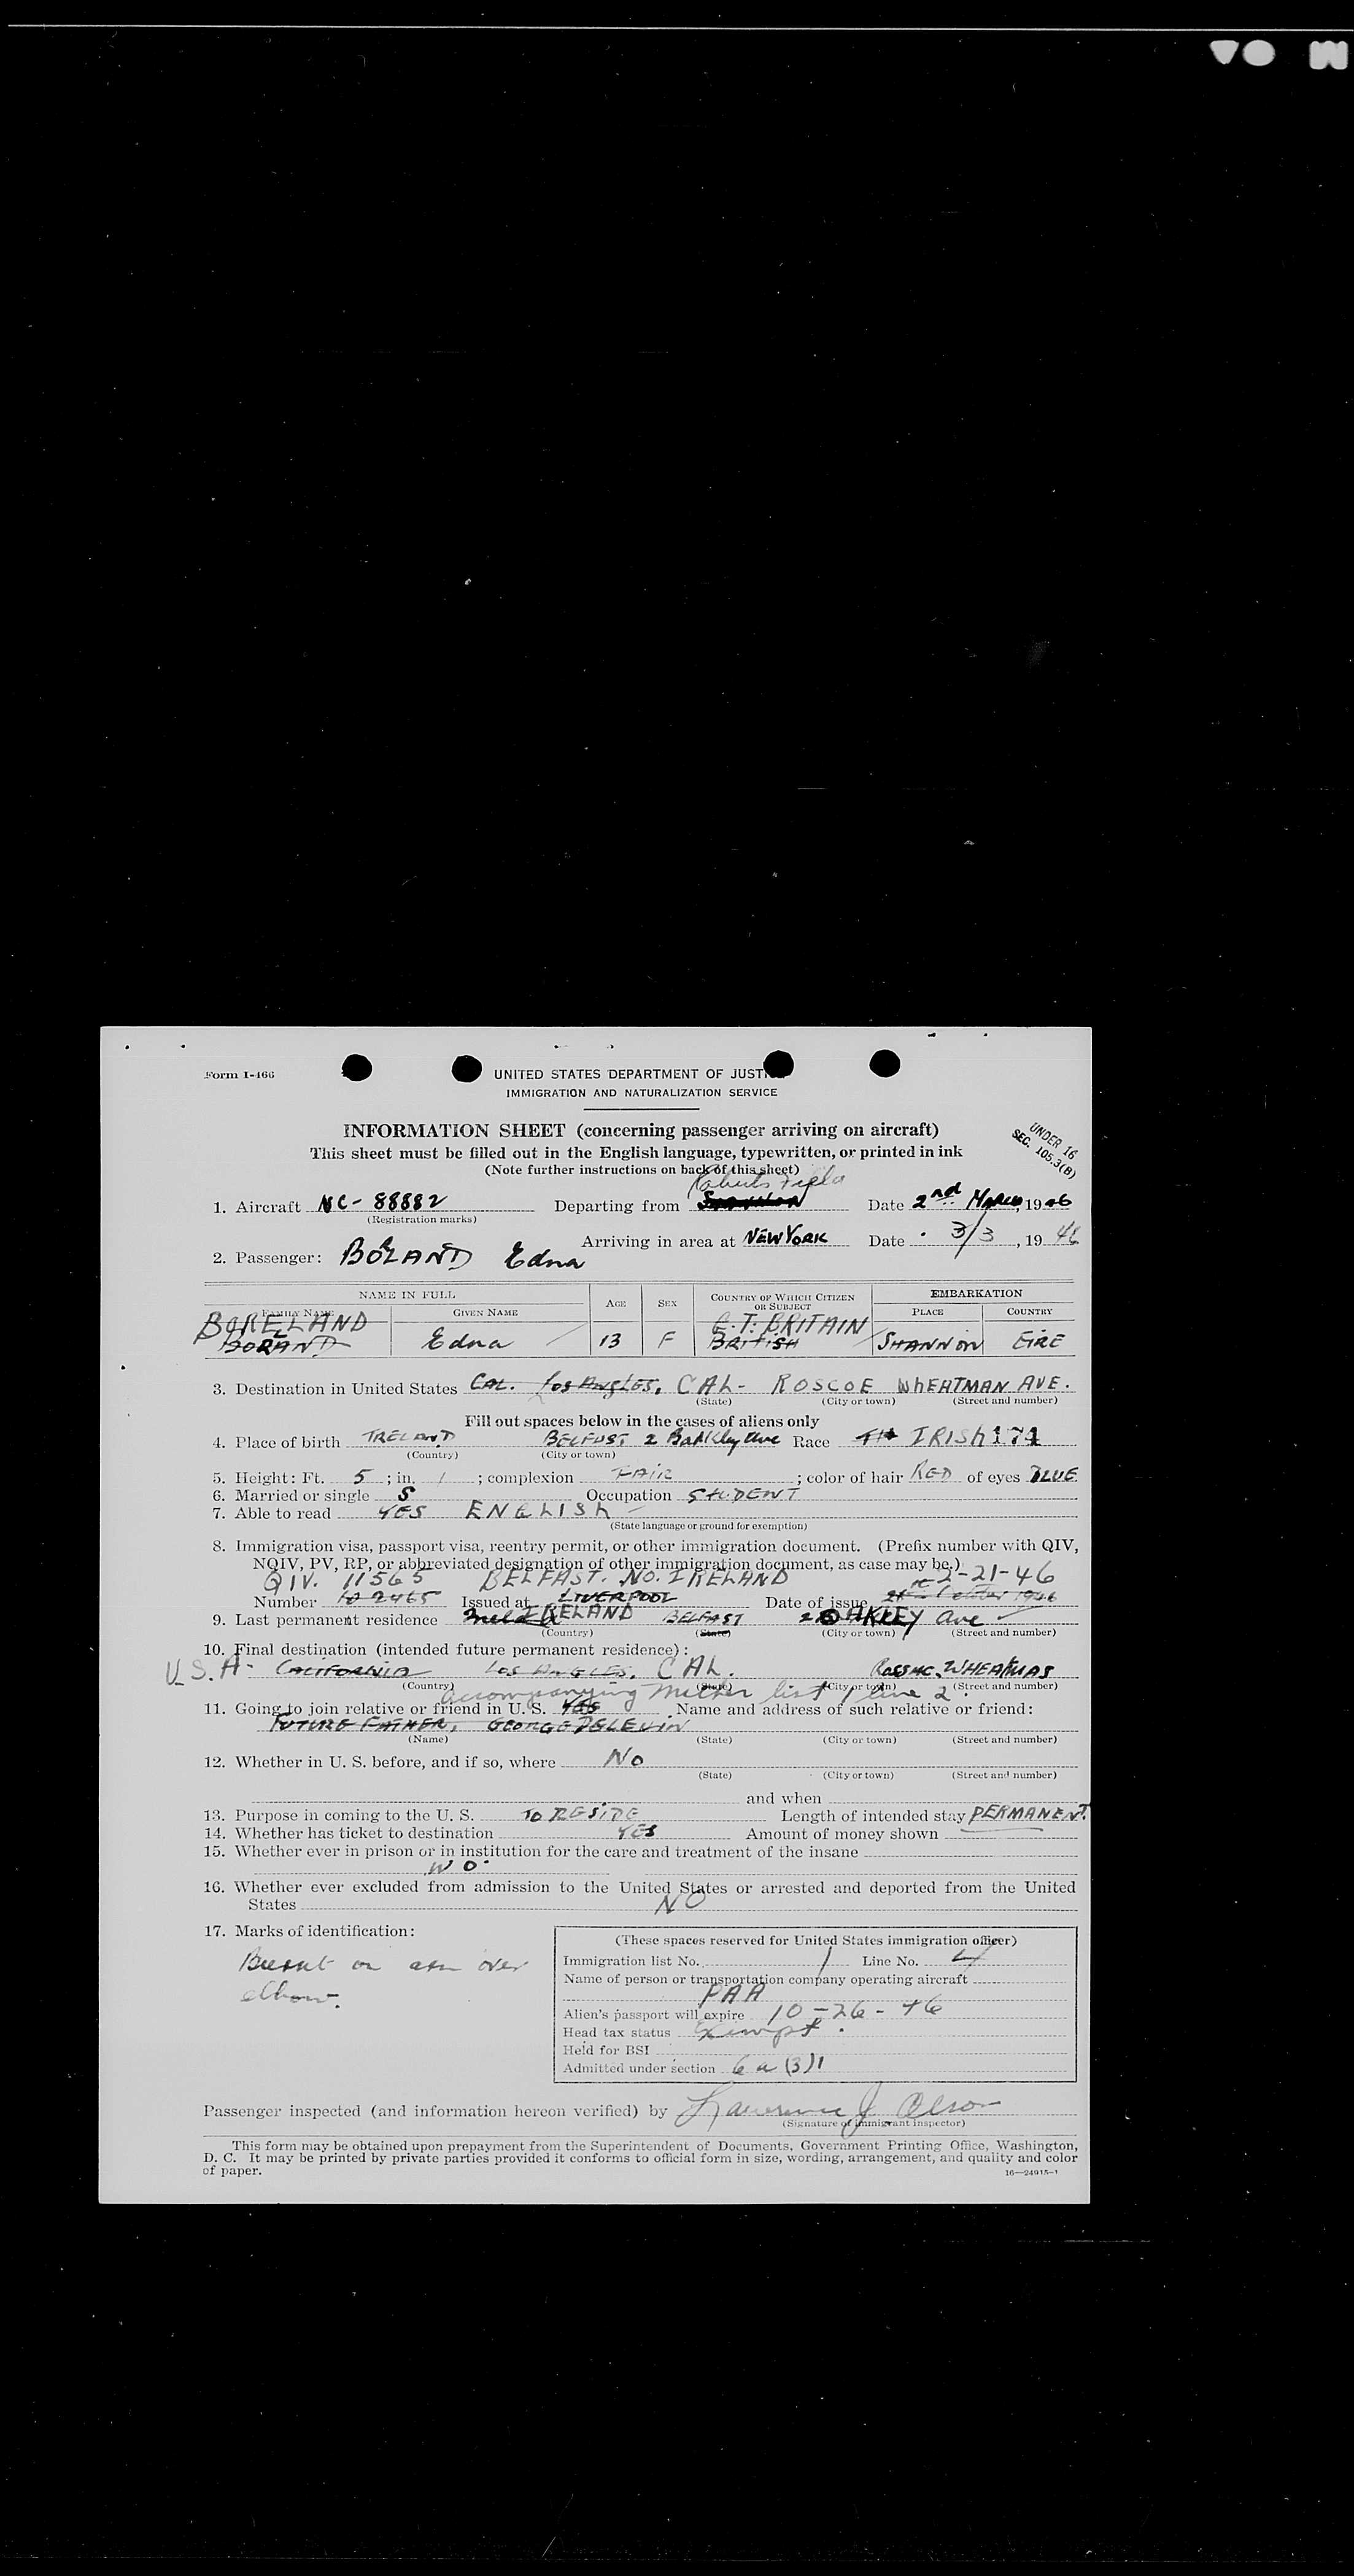 Form I-466
UNITED STATES DEPARTMENT OF JUSTI
IMMIGRATION AND NATURALIZATION SERVICE
INFORMATION SHEET (concerning passenger arriving on aircraft)
This sheet must be filled out in the English language, typewritten, or printed in ink
(Note further instructions on back of this sheet)
UNDER 16
SEC. 105.3(B)
Roberts Field
1. Aircraft NC-88882 Departing from Shannon Date 2nd March, 1946
(Registration marks)
Arriving in area at NEW YORK Date 3/3, 1946
2. Passenger: BOLAND Edna
NAME IN FULL AGE SEX COUNTRY OF WHICH CITIZEN OR SUBJECT EMBARKATION
FAMILY NAME GIVEN NAME PLACE COUNTRY
BORELAND G.T. BRITAIN
BORAND Edna 13 F BRITISH SHANNON EIRE
3. Destination in United States CAL. Los Angles, CAL- ROSCOE WHEATMAN AVE.
(State) (City or town) (Street and number)
Fill out spaces below in the cases of aliens only
4. Place of birth IRELAND BELFUST 2 Barkley Ave Race IRISH 174
(Country) (City or town)
5. Height: Ft. 5; in. 1; complexion FAIR; color of hair RED of eyes BLUE
6. Married or single S Occupation STUDENT
7. Able to read YES ENGLISH
(State language or ground for exemption)
8. Immigration visa, passport visa, reentry permit, or other immigration document. (Prefix number with QIV,
NQIV, PV, RP, or abbreviated designation of other immigration document, as case may be.)
QIV. 11565 BELFAST. NO. IRELAND 2-21-46
Number 2465 Issued at LIVERPOOL Date of issue 1946
9. Last permanent residence IRELAND BELFAST 2 OAKLEY Ave
(Country) (State) (City or town) (Street and number)
10. Final destination (intended future permanent residence):
U.S.A- CALIFORNIA LOS ANGLES. CAL. WHEATMAS
(Country) (State) (City or town) (Street and number)
accompanying Mother list 1 line 2.
11. Going to join relative or friend in U. S. YES Name and address of such relative or friend:
FUTURE FATHER, GEORGE
(Name) (State) (City or town) (Street and number)
12. Whether in U. S. before, and if so, where No
(State) (City or town) (Street and number)
and when
13. Purpose in coming to the U. S. TO RESIDE Length of intended stay PERMANENT.
14. Whether has ticket to destination YES Amount of money shown
15. Whether ever in prison or in institution for the care and treatment of the insane
NO.
16. Whether ever excluded from admission to the United States or arrested and deported from the United
States NO
17. Marks of identification:
Burnt on arm over
elbow.
(These spaces reserved for United States immigration officer)
Immigration list No. 1 Line No. 4
Name of person or transportation company operating aircraft
PAA
Alien's passport will expire 10-26-46
Head tax status Exempt.
Held for BSI
Admitted under section 6a(3)1
Passenger inspected (and information hereon verified) by Lawrence J. Olson
(Signature of immigrant inspector)
This form may be obtained upon prepayment from the Superintendent of Documents, Government Printing Office, Washington,
D. C. It may be printed by private parties provided it conforms to official form in size, wording, arrangement, and quality and color
of paper.
16—24915-1